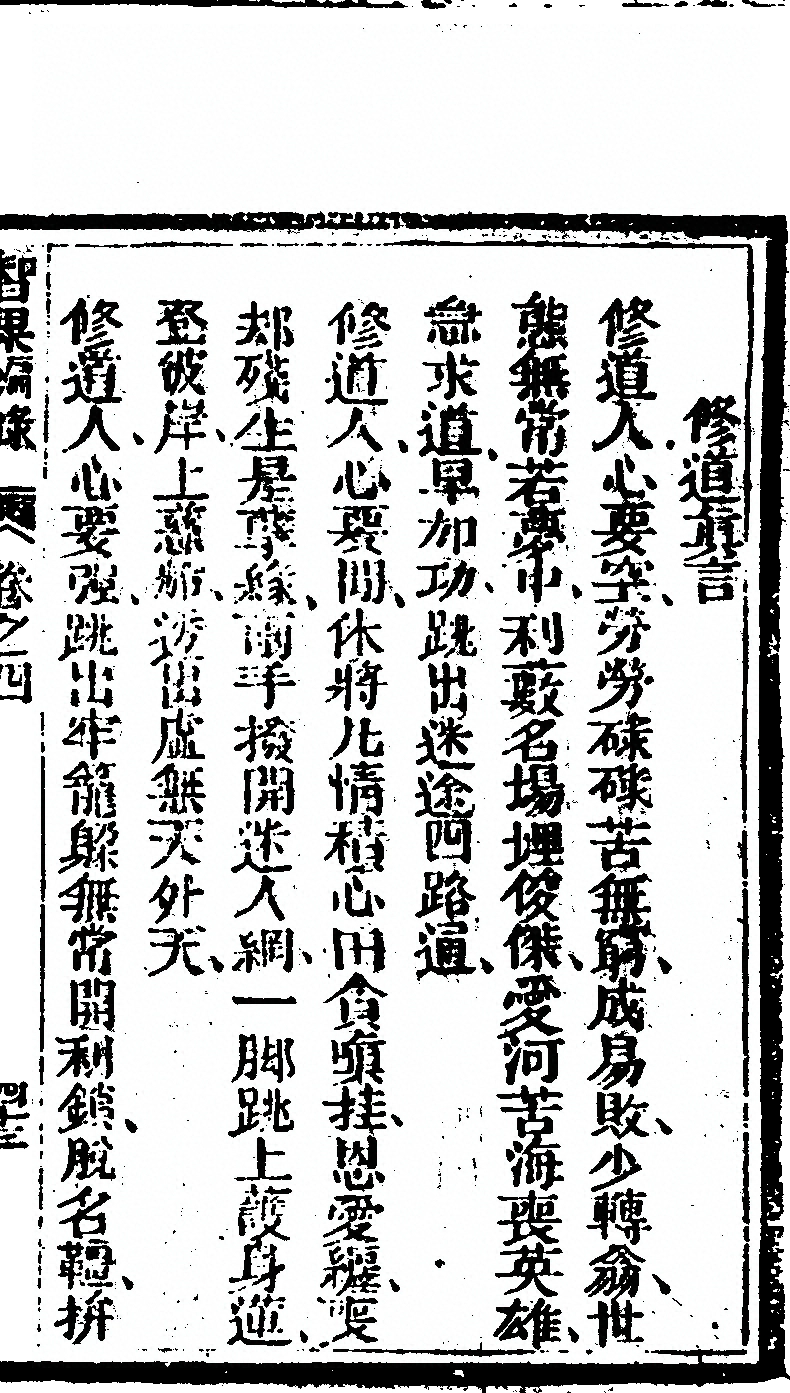 修道眞言
修道人、心要空、勞勞碌碌苦無窮、成易敗、少轉翁、世
態無常若夢中、利藪名場埋俊傑、愛河苦海喪英雄、
急求道、早加功、跳出迷途四路通、
修道人、心要閒、休將凡情積心田、貪嗔挂、恩愛纏、喪
却殘生是孽緣、兩手撥開迷人網、一脚跳上護身蓮、
登彼岸、上慈船、透出虛無天外天、
修道人、心要强、跳出牢籠躱無常、開利鎖、脫名韁、拚
智果編 卷之四